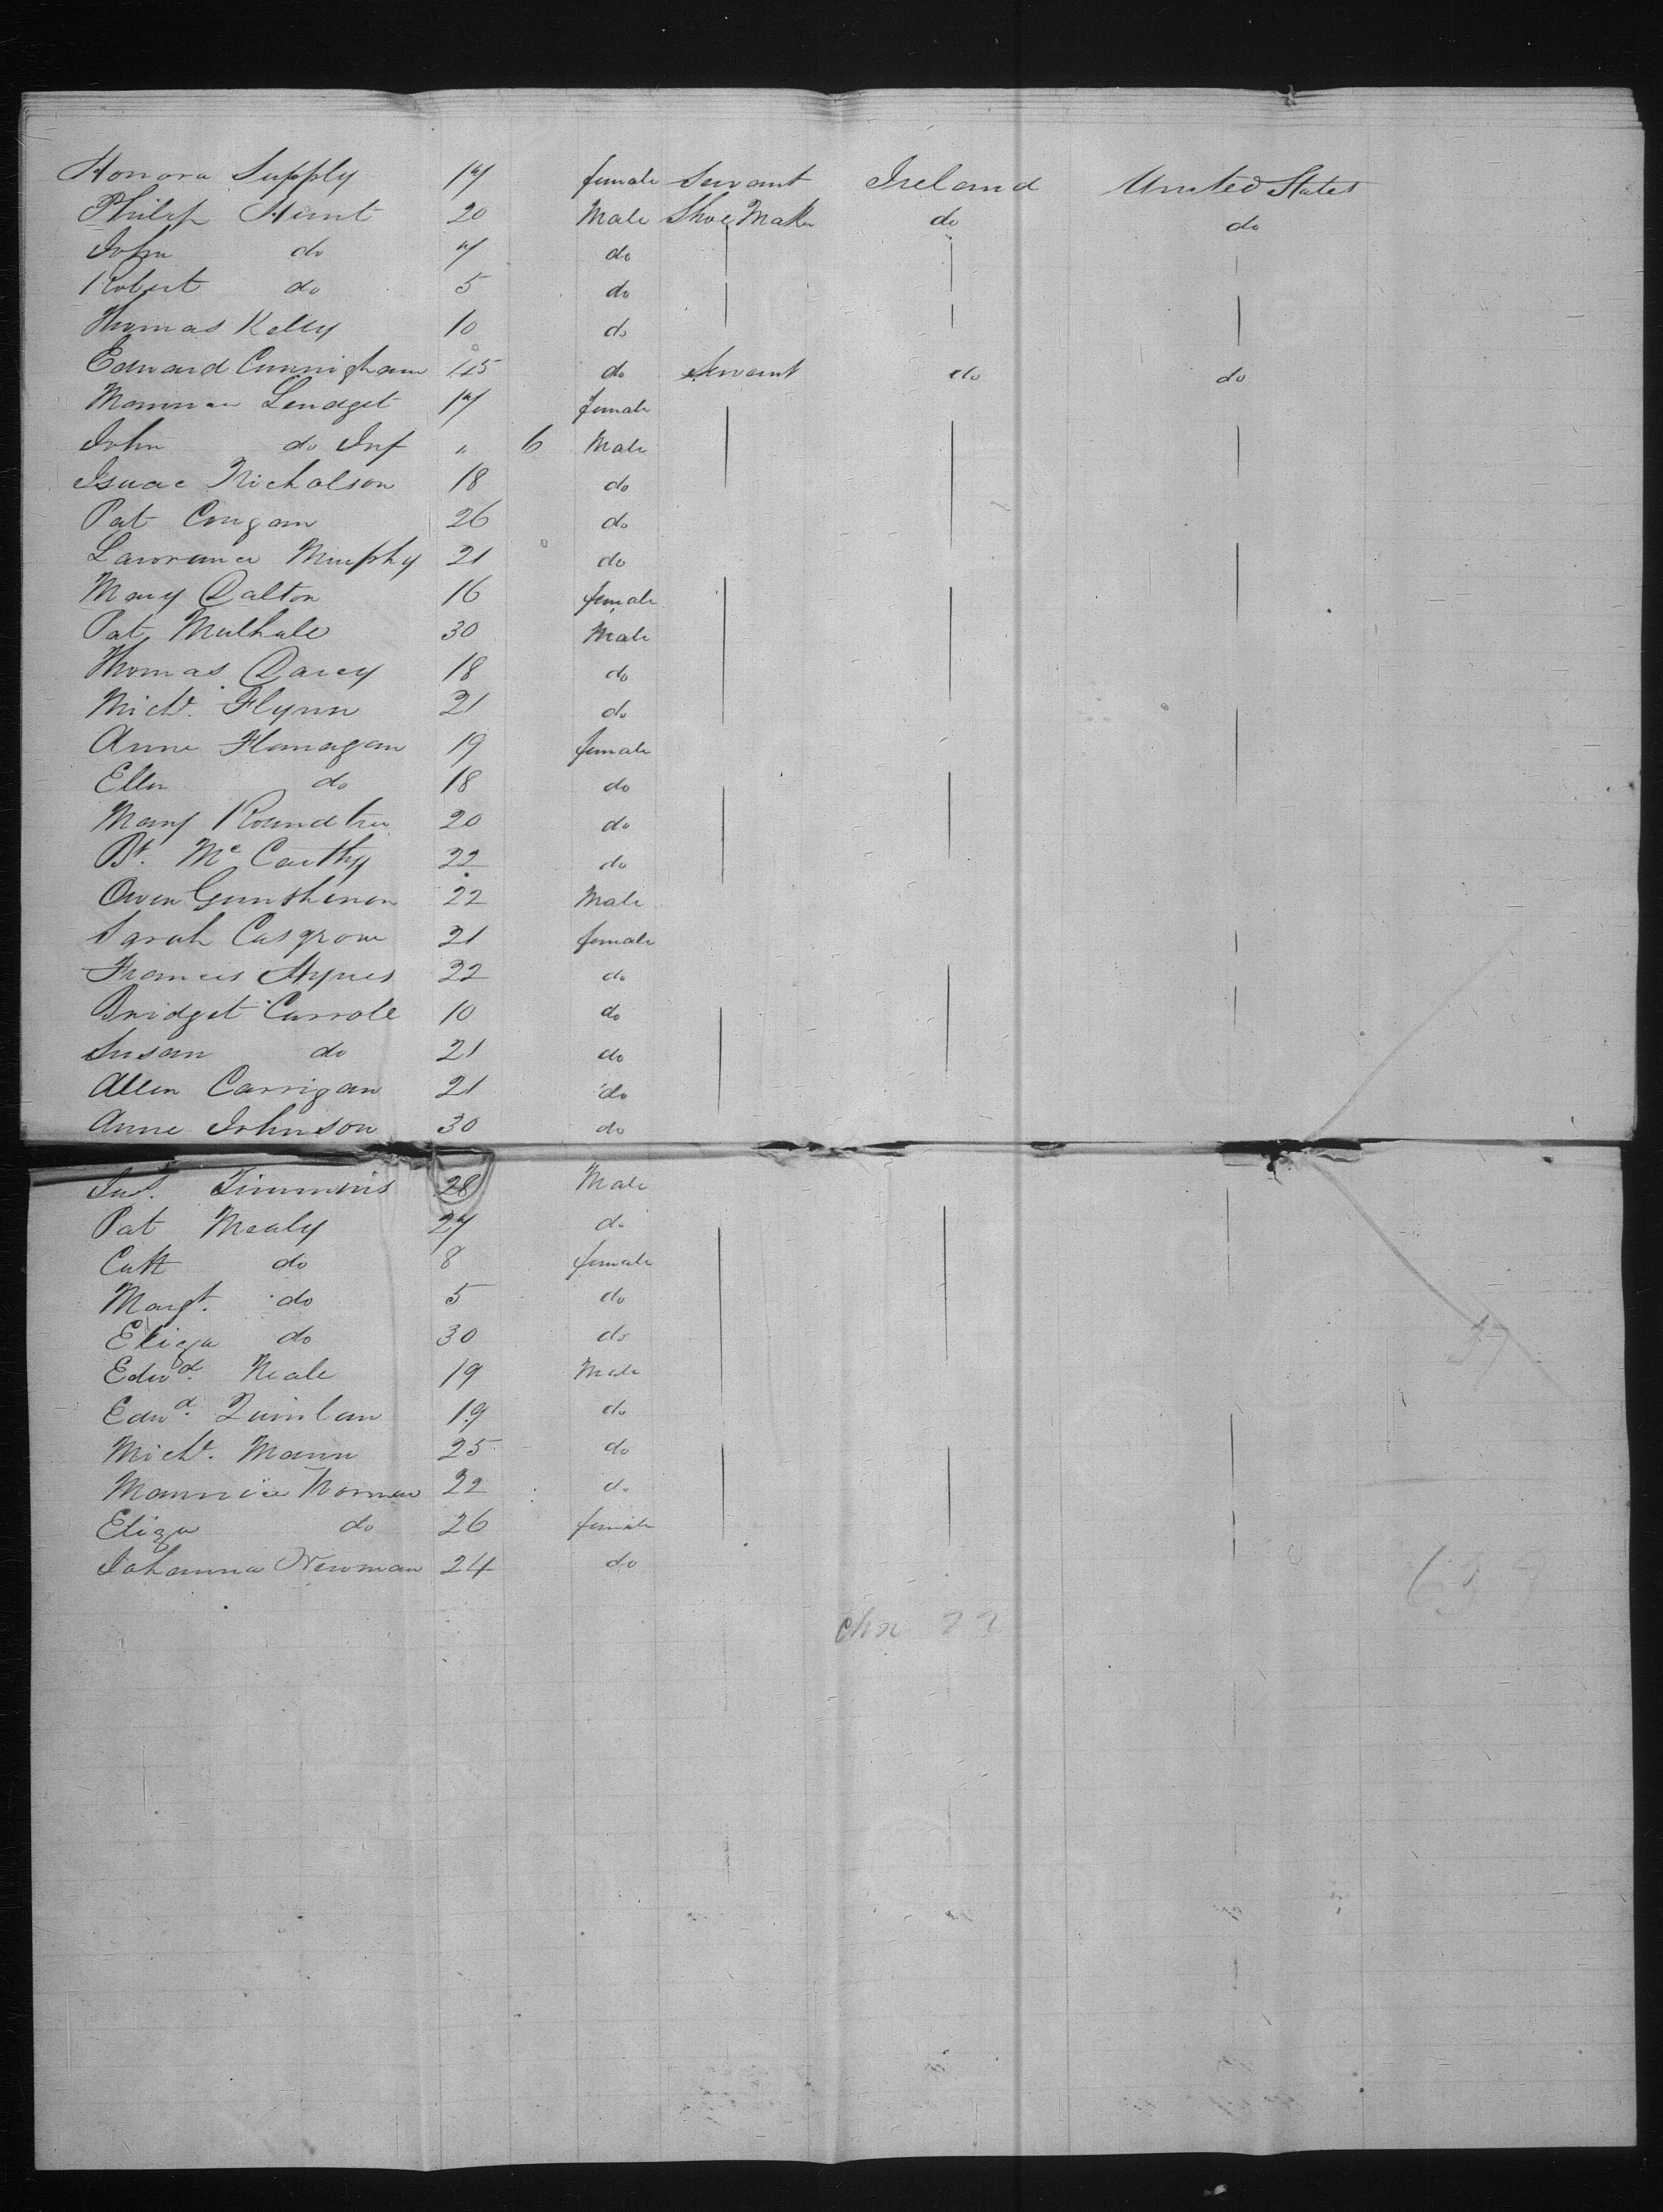 Honora Supply 17 female Servant Ireland United States
Philip Hunt 20 Male Shoe Maker do do
John do 7 do
Robert do 5 do
Thomas Kelly 10 do
Edward Cunnigham 15 do Servant do do
17 female
John do Inf " 6 Male
Isaac Nicholson 18 do
Pat Congan 26 do
Lawrance Murphy 21 do
Mary Dalton 16 female
Pat Mulhale 30 Male
Thomas Darcy 18 do
Michl. Flynn 21 do
Anne Flanagan 19 female
Ellen do 18 do
Mary Roundtree 20 do
Bt. Mc Carthy 22 do
Owen Gunshinon 22 Male
Sarah Casgrove 21 female
Frances Hynes 22 do
Bridget Carroll 10 do
Susan do 21 do
Allen Carrigan 21 do
Anne Johnson 30 do
Timmins 28 Male
Pat Mealy 27 do
Cath do 8 female
Margt. do 5 do
Eliza do 30 do
Edwd. Neale 19 Male
Edwd. Quinlan 19 do
Michl. Mann 25 do
22 do
Eliza do 26 female
Johanna Newman 24 do
37